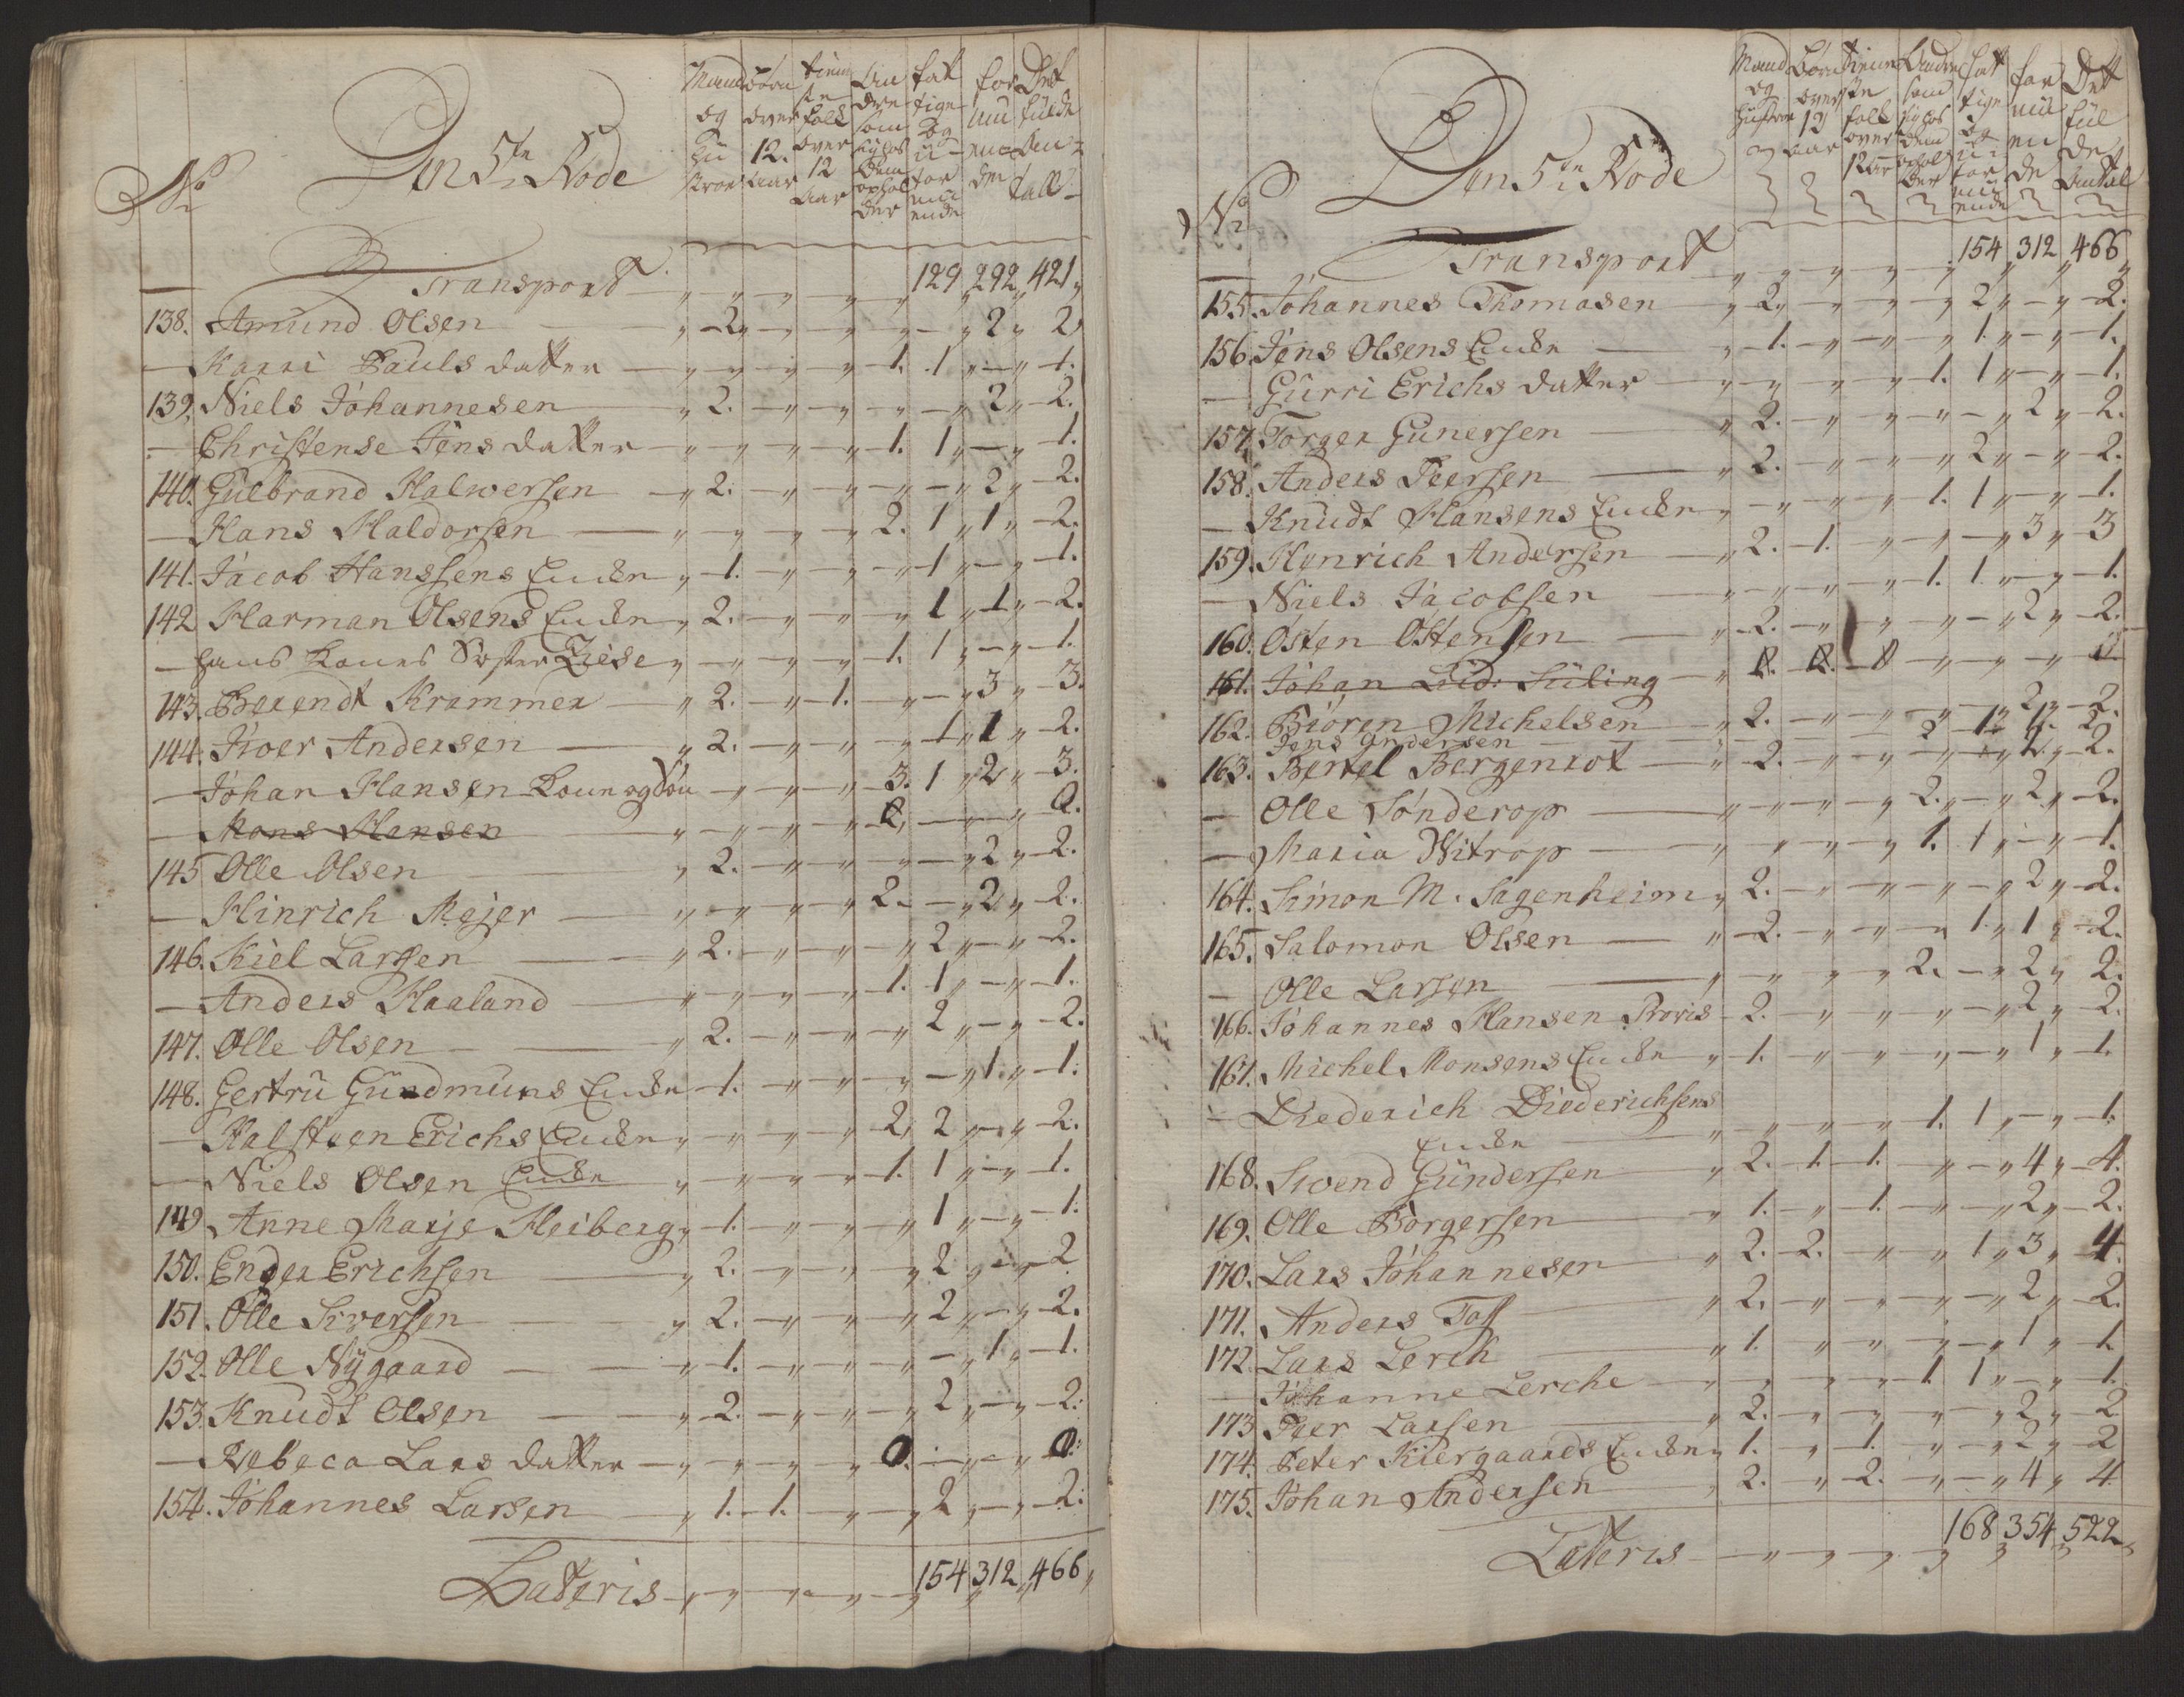 No
Den 5te Rode
Mand og Hustroe
Børn over 12. aar
tienneste folk over 12 aar
Andre som hos dem opholder
fattige og uformuende
formuende
Det fulde Antall
Transport 129 292 421
138. Amund Olsen 2 2 2
Karri Pauls datter 1. 1 1.
139. Niels Johannesen 2. 2 2.
Christense Jens datter 1. 1 1.
140. Gulbrand Halwersen 2. 2 2.
Hans Haldorsen 2. 1 1 2.
141. Jacob Hanssens Encke 1. 1 1.
142 Harman Olsens Encke 2. 1 1 2.
hans Kones Søster Zidse 1. 1 1.
143. Berendt Krammer 2. 1. 3 3.
144. Iwer Andersen 2. 1 1 2.
Johan Hansen Kone og Søn 3. 1 2 3.
Mons Hansen 0. 0.
145 Olle Olsen 2. 2 2.
Hinrich Mejer 2. 2 2.
146. Kiel Larsen 2. 2 2.
Anders Haaland 1. 1 1.
147. Olle Olsen 2. 2 2.
148. Gertru Gundmuns Encke 1. 1 1.
Halsteen Erichs Encke 2. 2 2.
Niels Olsen Encke 1. 1 1.
149 Anne Marje Heiberg 1. 1 1.
150. Ender Erichsen 2. 2 2
151. Olle Siversen 2. 2 2.
152. Olle Nÿgaard 1. 1 1.
153. Knudt Olsen 2. 2 2.
Rebeca Lars datter 0. 0.
154. Johannes Larsen 1. 1. 2 2.
Lateris 154 312 466
No
Den 5te Rode
Mand og Hustroe
Børn over 12 aar
tienneste folk over 12 aar
Andre som hos dem opholder
fattige og uformuende
formuende
Det fulde Antal
Transport 154 312 466
155. Johannes Thomasen 2 2 2.
156. Jens Olsens Encke 1. 1. 1.
Gurri Erichs datter 1. 1 1.
157. Torger Gunersen 2. 2 2.
158. Anders Peersen 2. 2 2.
Knudt Hansens Encke 1. 1 1.
159. Henrich Andersen 2. 1. 3 3
Niels Jacobsen 1. 1. 1.
160. Østen Østensen 2. 2 2.
161. Johan Lud: Süling 0. 0. 0 0
162. Biören Michelsen 2. 2 2.
Jens Andersen 2 1 1. 2
163. Bertel Bergenrot 2. 2. 2.
Olle Sønderop 2. 2 2.
Maria Witrop 1. 1 1.
164. Simon M. Sagenheim 2. 2 2.
165. Salomon Olsen 2. 1 1 2.
Olle Larsen 2. 2 2.
166. Johannes Hansen Roris 2. 2 2.
167. Michel Monsens Encke 1. 1 1.
Diederich Diederichsens
Encke 1. 1 1.
168. Swend Gündersen 2. 1. 1. 4 4.
169. Olle Børgersen 1. 1. 2 2.
170. Lars Johannesen 2. 2. 1 3 4.
171. Anders Toff 2. 2 2.
172. Lars Lerch 1. 1 1.
Johanne Lerche 1. 1 1.
173 Peer Larsen 2. 2 2
174. Peter Kiergaards Encke 1. 1. 2 2
175. Johan Andersen 2. 2. 4 4
Lateris 168 354 522